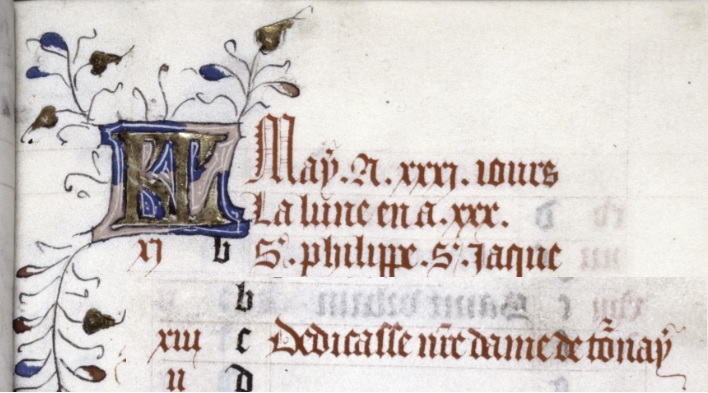 KL May. A. xxxi. iours
La lune en a. xxx.
xi b S. philippe. S. Jaque
b
xiii c Dedicasse nře dame de tõnay
ii d